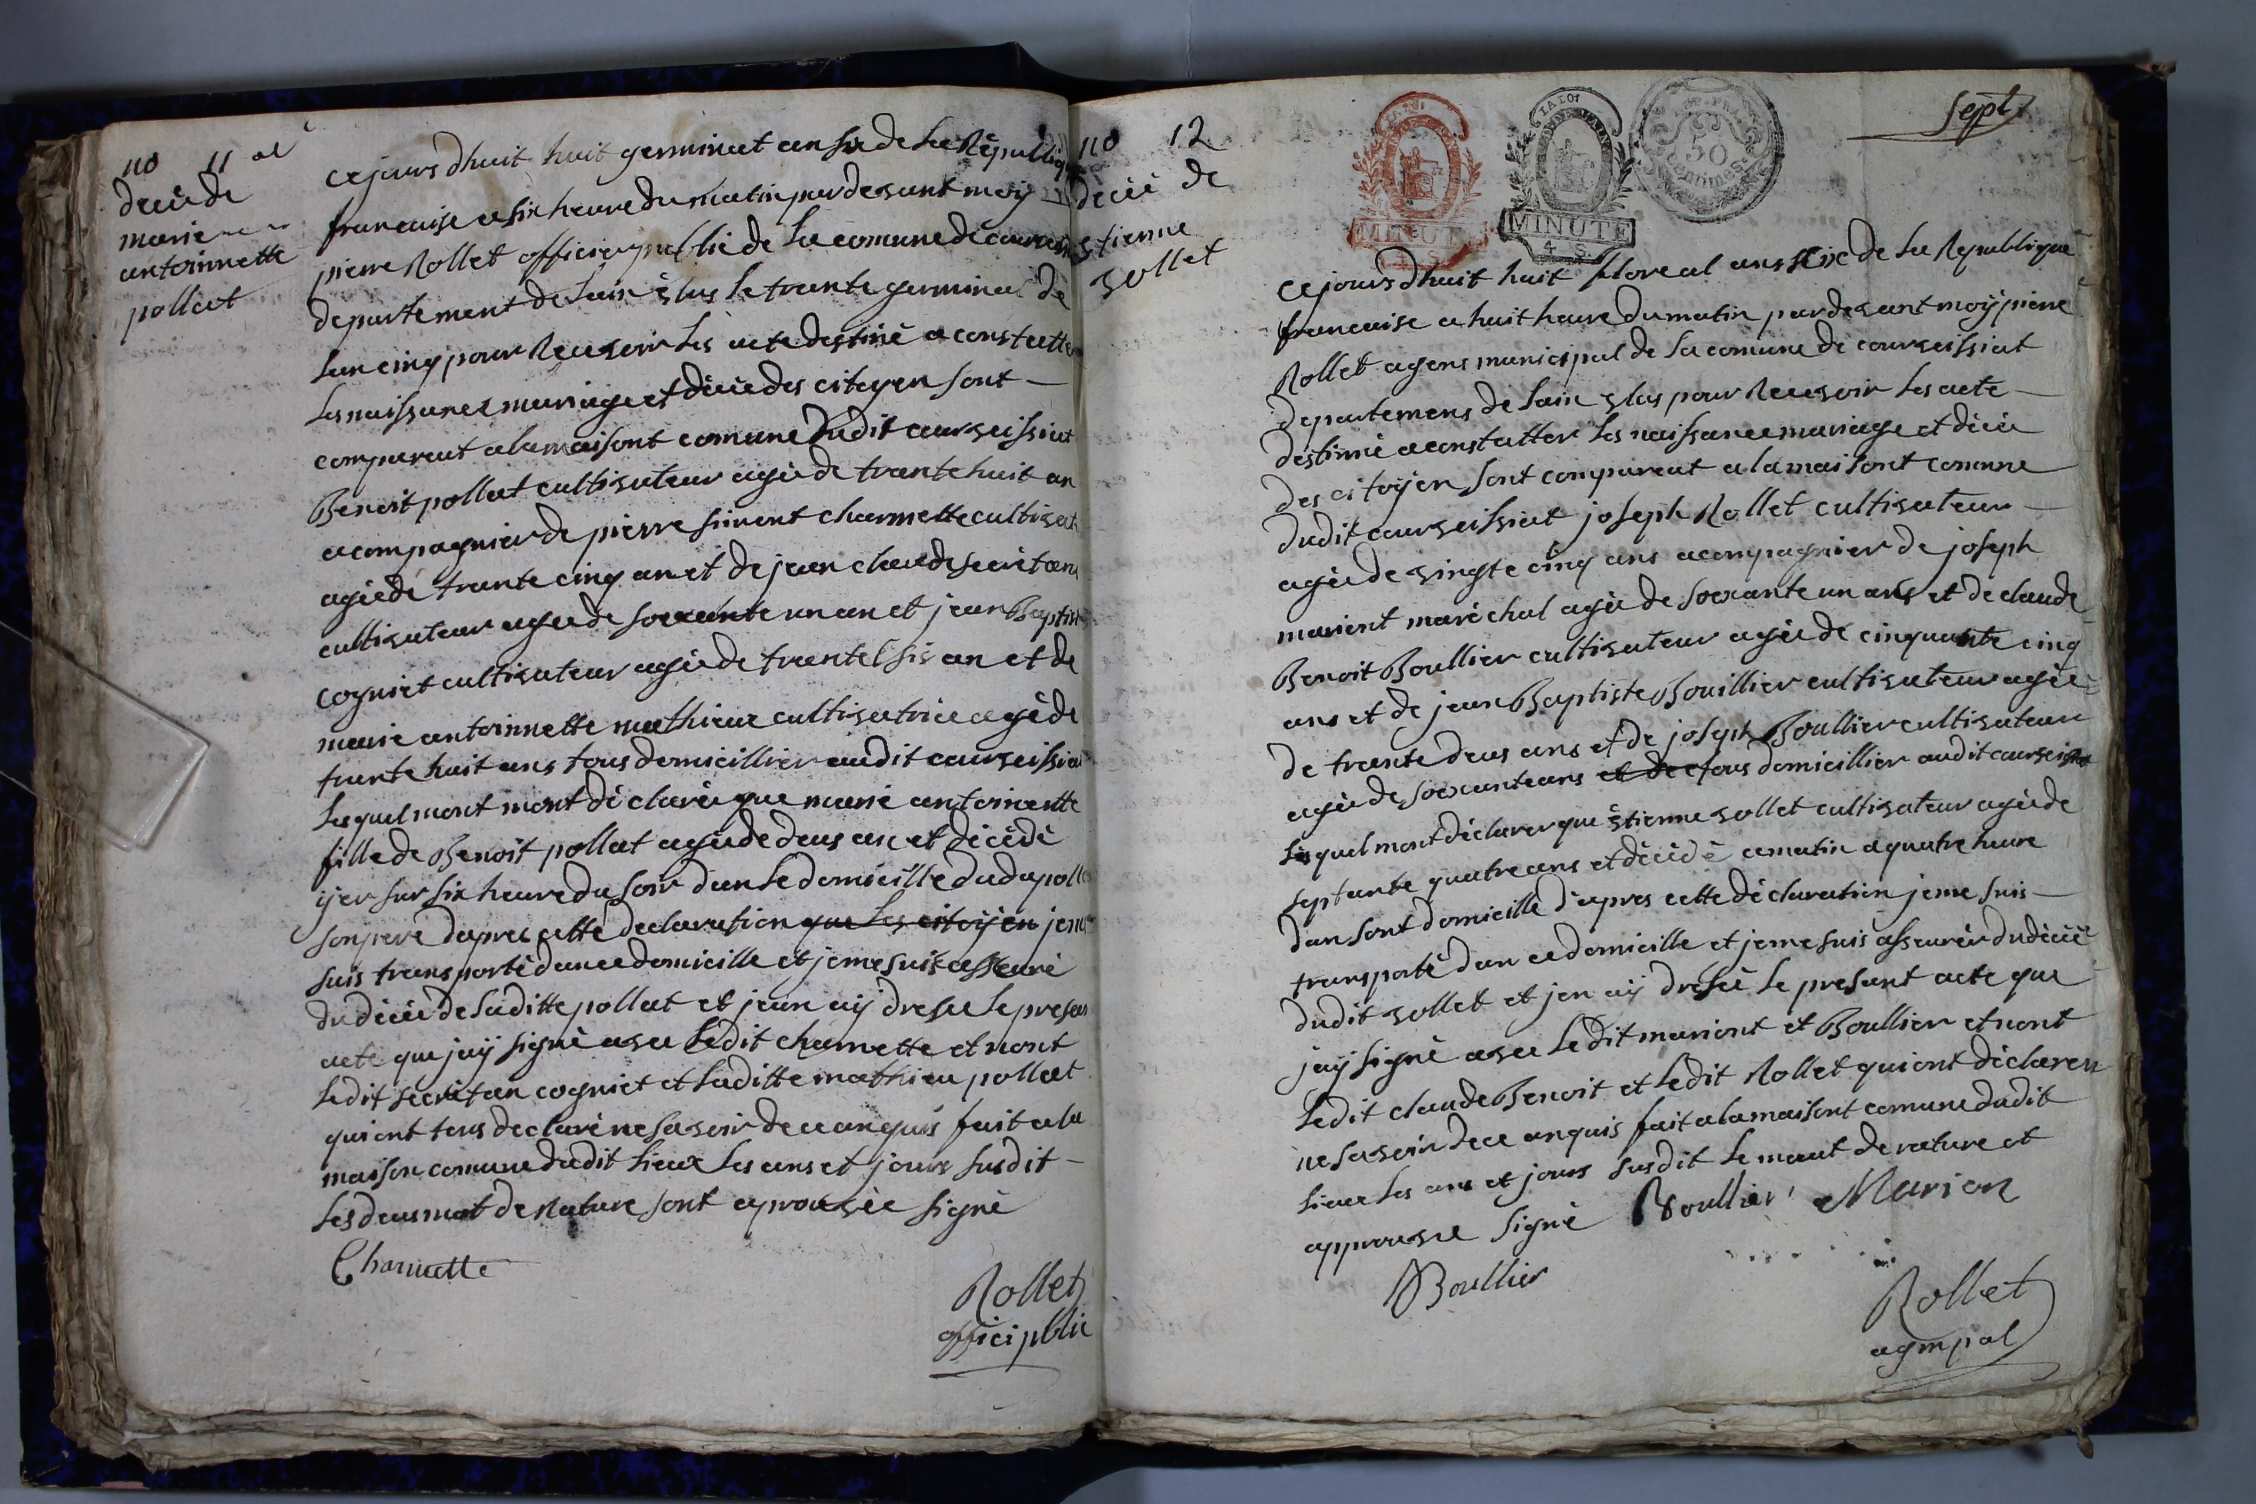 no 11
decéde
marie
antoinnette
pollat
cejours dhuit huit germinat an six de la Républiq
francaise a six heure du matin pardevant moÿ
pierre Rollet officier public de la comune de
departement de lain élus le trante germinal de
lan cinq pour Recevoir les acte destiné a constatter
les naissance mariage et décée des citoyen sont
compareut a la maisont comune dudit courveissiat
Benoit pollat cultivateur agée de trante huit an
acompagnier de pierre simont charmette cultivat
agée de trante cinq an et de jean claude secretan
cultivateur agée de soexante un an et jean Baptist
cogniet cultivateur agée de trante six an et de
marie antoinnette mathieux cultivatrice agé de
trante huit ans tous domicillier audit courveissiat
lesquel mont mont déclaré que marie antoinette
fille de Benoit pollat agée de deus an et décédé
ÿer sur six heure du soir dan le domicille dudi pollat
son pere dapres cette declaration que les citoÿen jeme
suis transporté dan ce domicille et jeme suis asseuré
du décée de laditte pollat et jean aÿ dresée le presan
acte que jaÿ signé avec ledit charmette et nont
ledit secretan cogniet et laditte mathieu pollat
qui ont tous declaré ne savoir de ce anquis fait a la
maison comune dudit lieux les ans et jours susdit
les deus mot de Rature sont aprouvée signé
Charmette
Rollet
offici pblic
no 12
décée de
étienne
vollet
sept
LA LOI
MINUTE
4 S
LA LOI
MINUTE
4 S
50
centimes
cejours dhuit huit floreal ans sixe de la Republique
francaise a huit heure du matin pardevant moÿ pierre
Rollet agens municipal de la comune de courveissiat
departemens de lain élus pour Recevoir les acte
destinné a constatter les naissance mariage et décée
des citoÿen sont compareut a la maisont comune
dudit courveissiat joseph Rollet cultivateur
agée de vingte cinq ans acompagnier de joseph
mariont maréchal agée de soexante un ans et de claude
Benoit Boullier cultivateur agée de cinquante cinq
ans et de jean Baptiste Bouillier cultivateur agée
de trante deus ans et de joseph Boullier cultivateur
agée de soexante ans et de c tous domicillier audit courveissiat
lesquel mont déclarer que étienne vollet cultivateur agée de
septante quatre ans et décédé ce matin a quatre heure
dan sont domicille d'apres cette déclaration jeme suis
transporté dan ce domicille et jeme suis asseurér du décée
dudit vollet et jen aÿ dresée le presant acte que
jaÿ signé avec ledit mariont et Boullier et nont
ledit claude Benoit et ledit Rollet qui ont déclarer
ne savoir de ce anquis fait a la maisont comune dudit
lieux les ans et jours susdit le maut de rature et
approuvée signé Boullier Marion
Boullier
Rollet
ag mpal